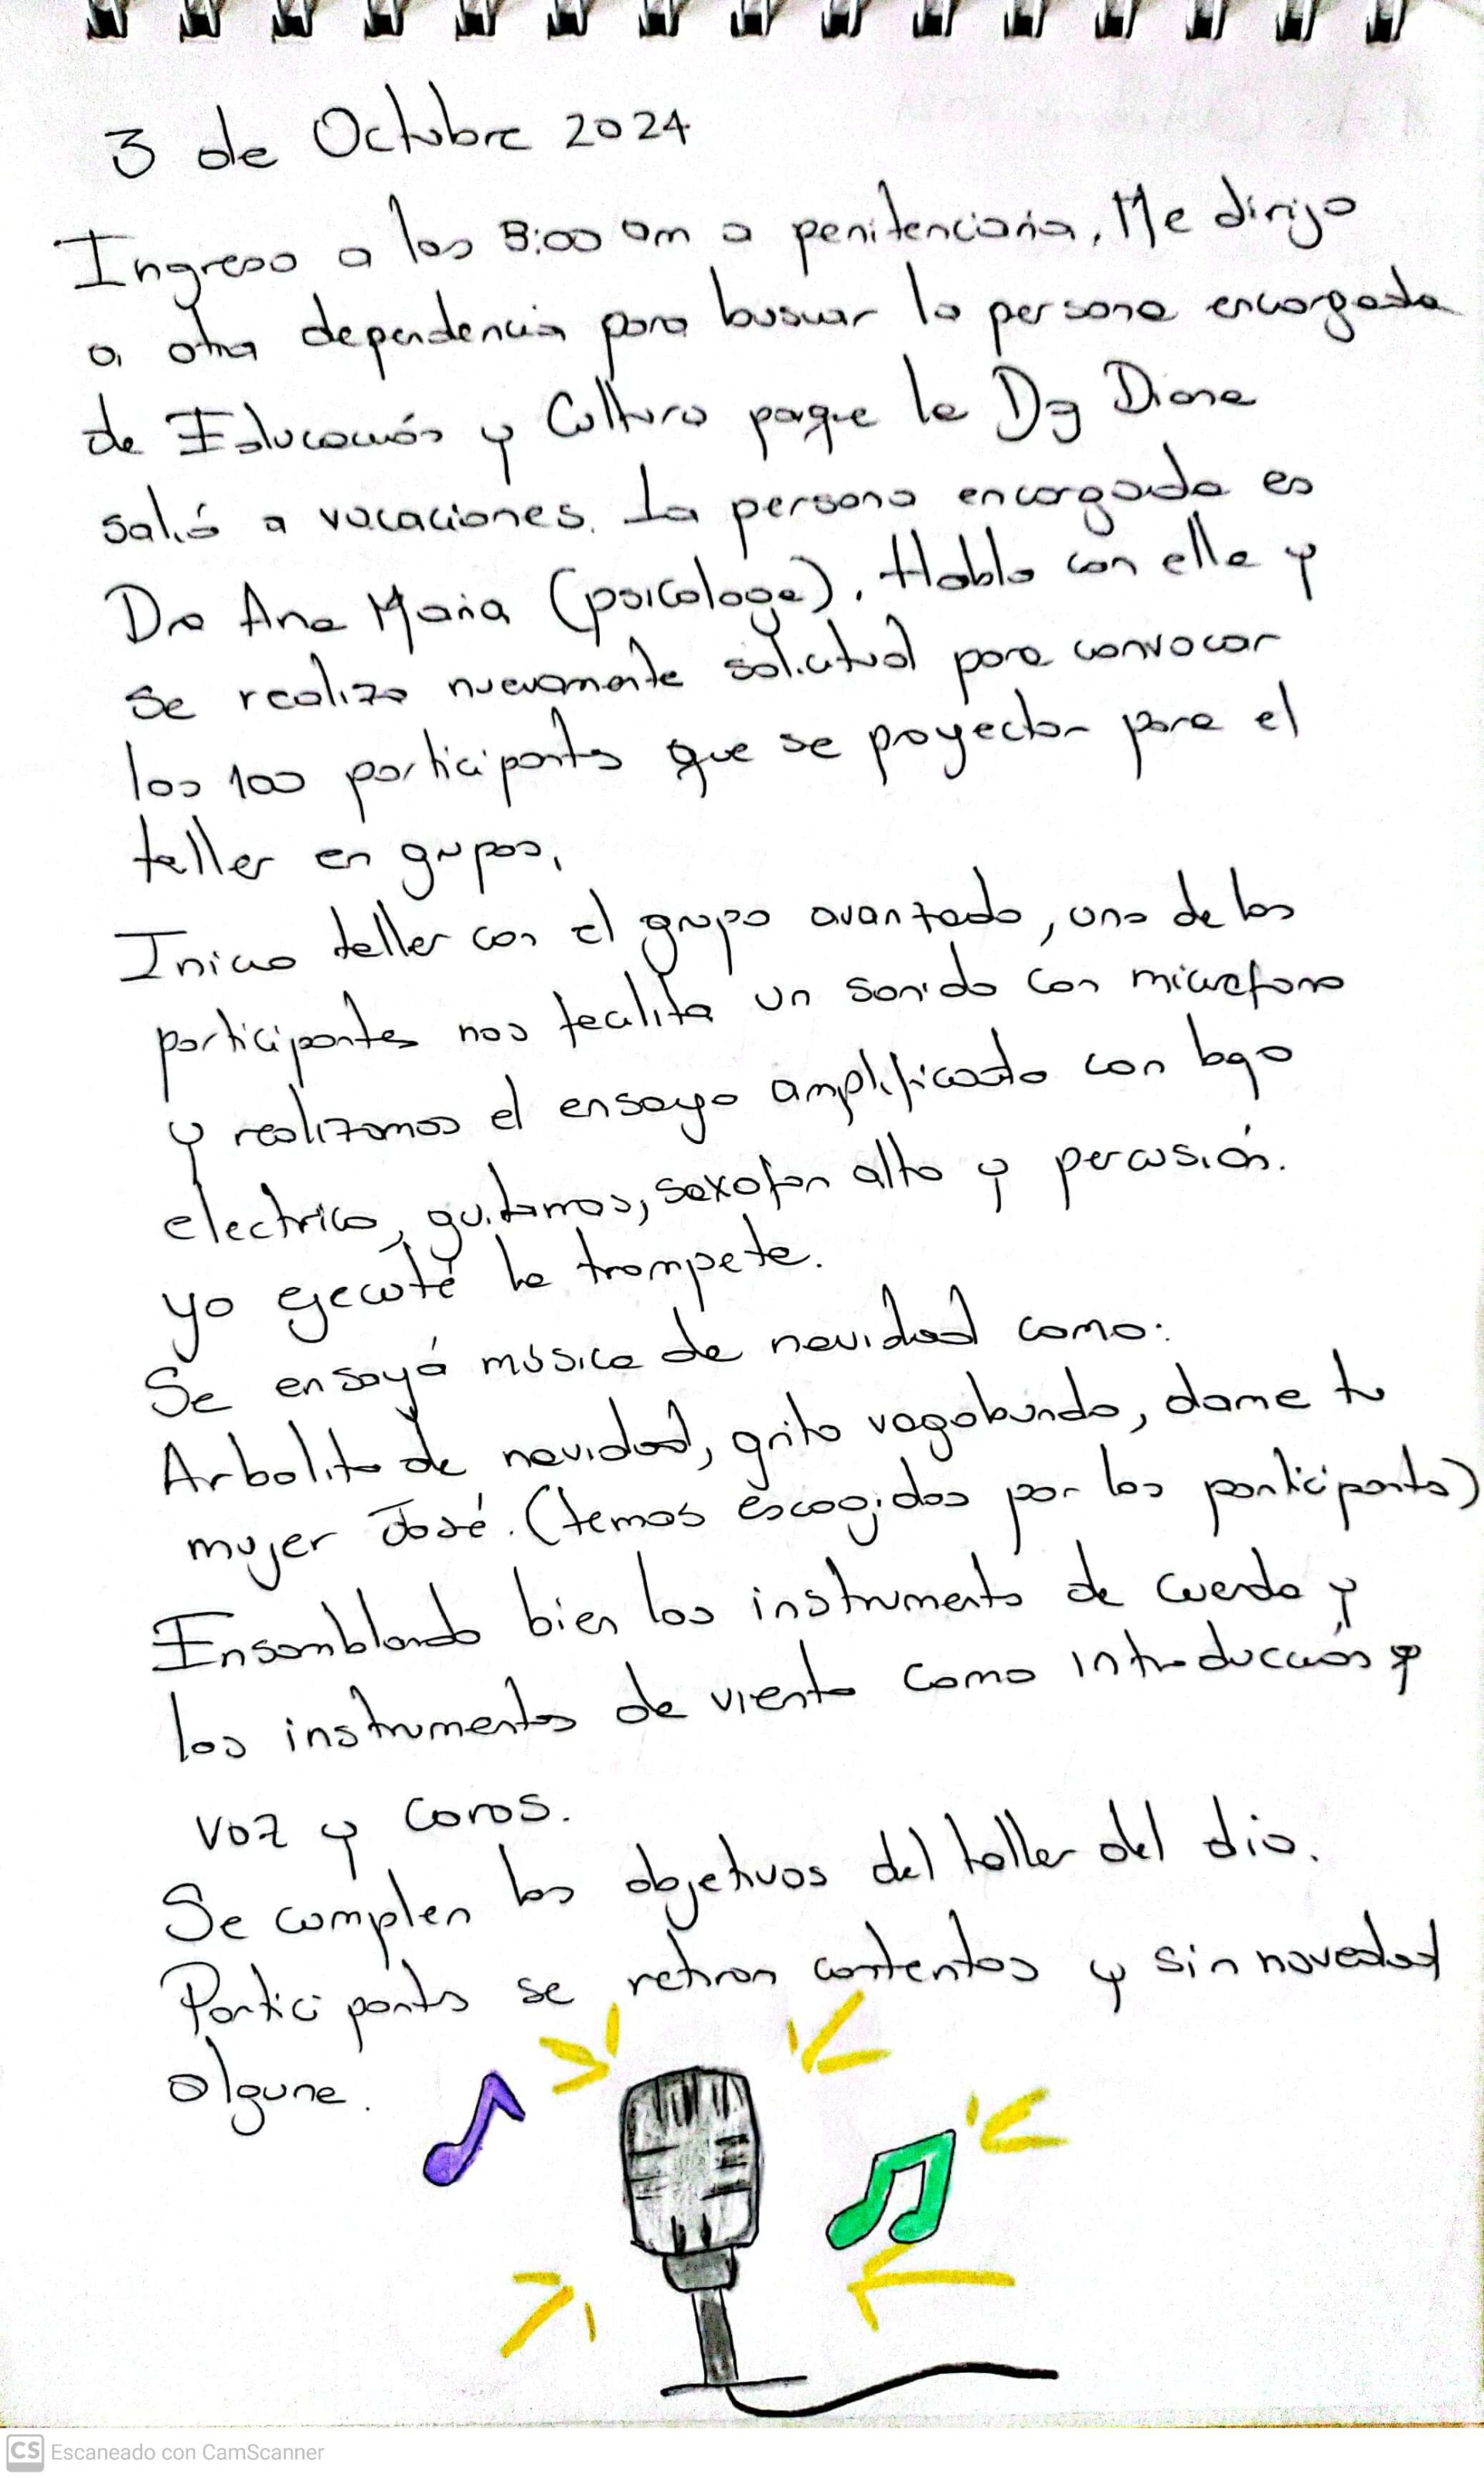 3 de Octubre 2024
Ingreso a las 8:00 am a penitenciaria, Me dirijo
a otra dependencia para buscar la persona encargada
de Educación y Cultura porque la Dg Diana
salió a vacaciones. La persona encargada es
Dra Ana Maria (psicologa). Hablo con ella y
se realiza nuevamente solicitud para convocar
los 100 participantes que se proyectan para el
taller en grupos,
Inicio taller con el grupo avanzado, uno de los
participantes nos facilita un sonido con microfono
y realizamos el ensayo amplificado con bajo
electrico, guitarras, saxofon alto y percusión.
yo ejecuté la trompeta.
Se ensayó música de navidad como:
Arbolito de navidad, grito vagabundo, dame tu
mujer José. (temas escogidos por los participantes)
Ensamblando bien los instrumentos de cuerda y
los instrumentos de viento como introducción y
voz y coros.
Se cumplen los objetivos del taller del dia.
Participantes se retiran contentos y sin novedad
alguna.
CS Escaneado con CamScanner